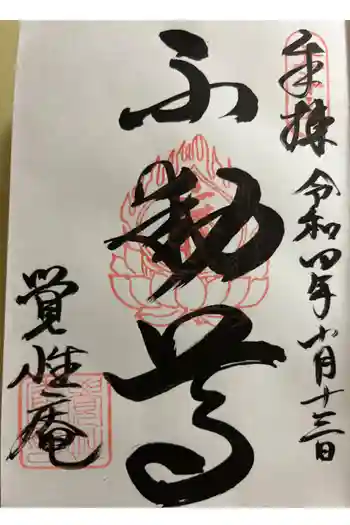 奉拝
令和四年十月十三日
不動尊
覚性庵